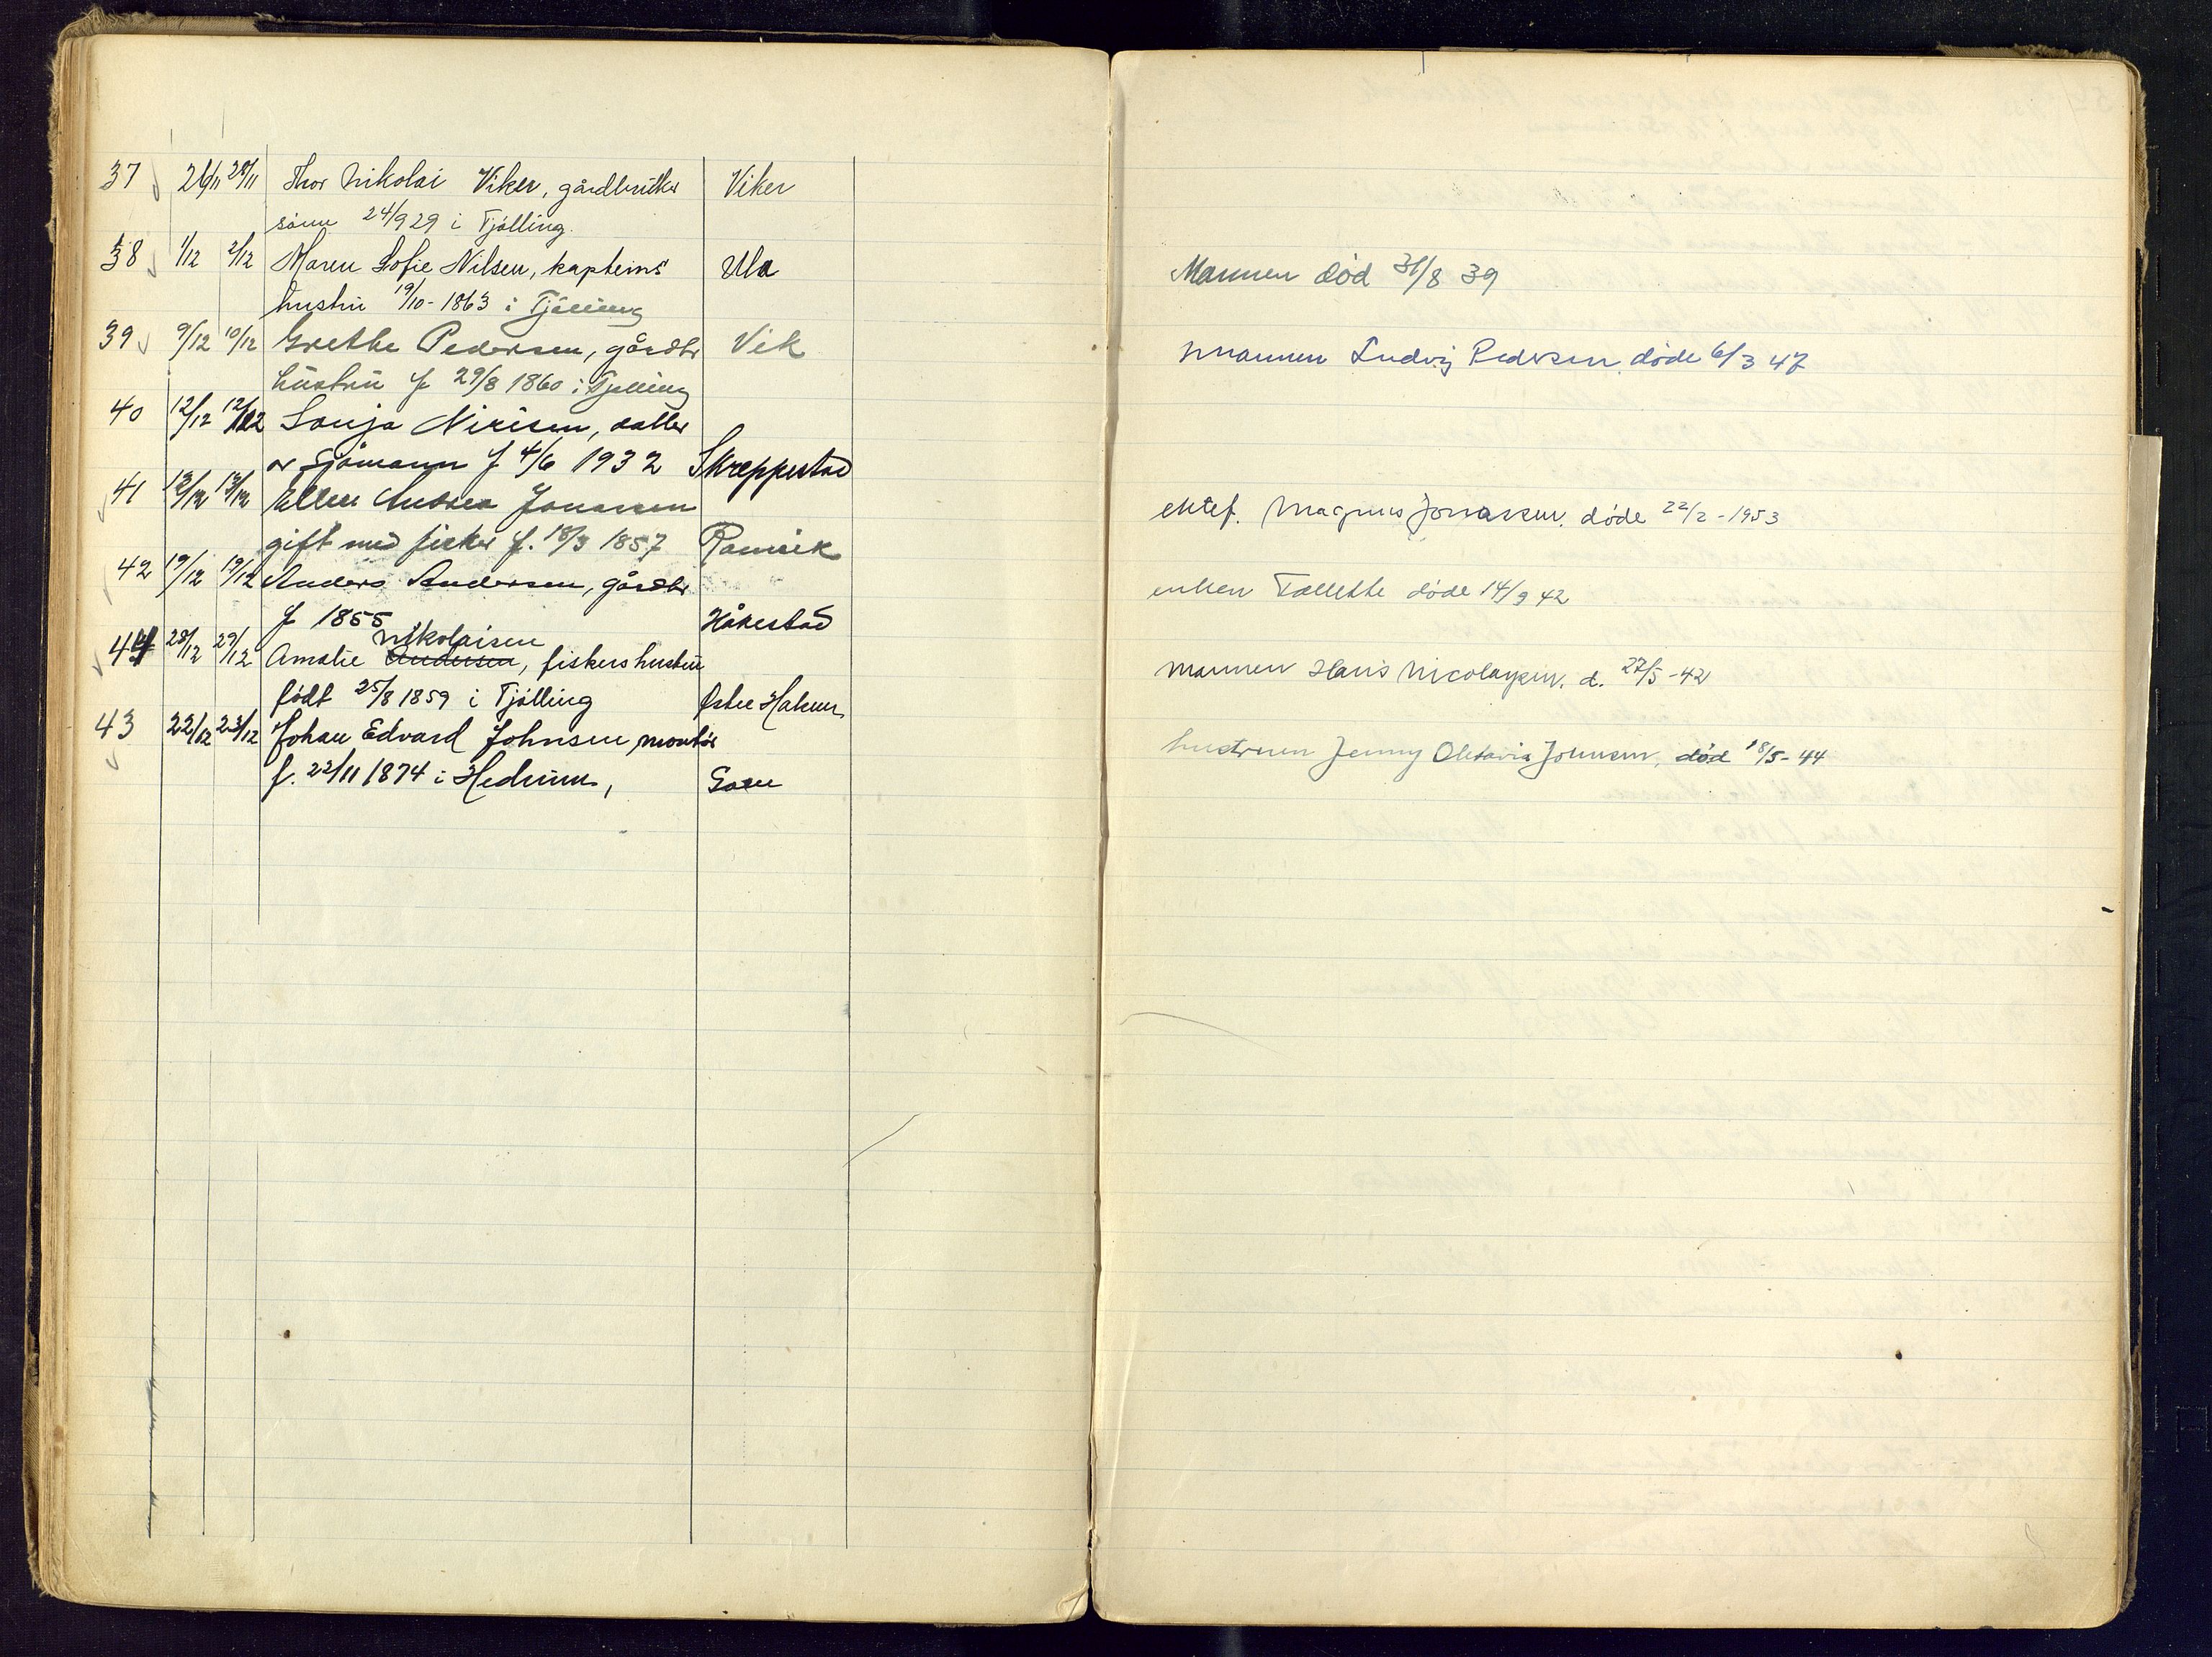 37 26/11 28/11 Thor Nikolai Viker, gårdbruker Viker
sönn 24/9 29 i Tjölling.
38 1/12 2/12 Maren Sofie Nilsen, kapteins Ula Mannen död 31/8 39
hustru 19/10-1863 i Tjölling
39 9/12 10/12 Grethe Pedersen, gårdbr Vik Mannen Ludvig Pedersen döde 6/3 47
hustru f 29/8 1860 i Tjölling
40 12/12 12/12 Sonja datter
av Sjömann f 4/6 1932 Skreppestad
41 13/12 13/12 Ellen Andrea Jonassen ektef. Magnus Jonassen. döde 22/2-1953
gift med fisker f. 18/3 1857 Ramvik
42 19/12 19/12 Anders Andersen, gårdbr enken döde 14/9 42
f 1855 Håkestad
Nikolaisen
44 28/12 29/12 Amalie Andersen, fiskers hustru Mannen Hans Nicolaysen. d. 27/5-42
födt 25/8 1859 i Tjölling Östre Halsen
43 22/12 23/12 Johan Edvard Johnsen, montör hustruen Jenny Oktavia Johnsen, död 18/5-44
f. 22/11 1874 i Hedrum,